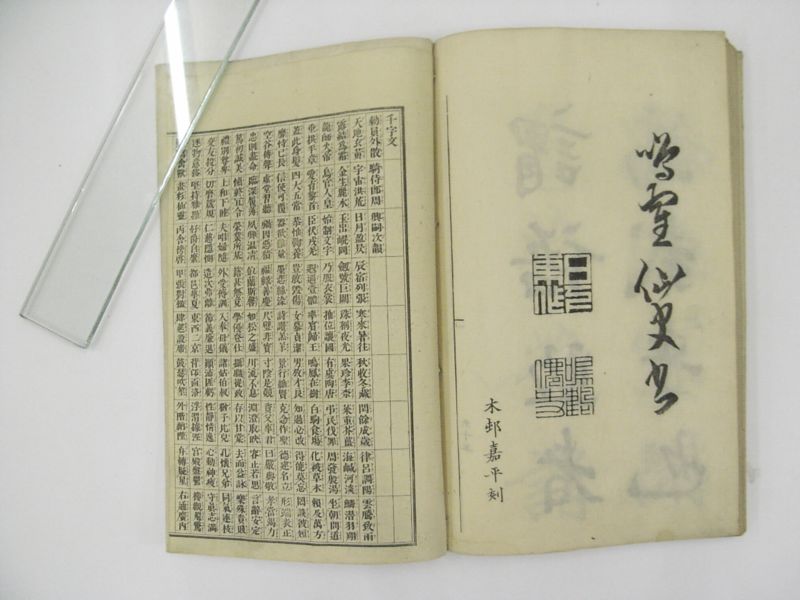 鳴鶴仙史書
日下東作
鳴鶴僊史
木邨嘉平刻
千字文
勅員外散 騎侍郎周 興嗣次韻
天地玄黄 宇宙洪荒 日月盈昃 辰宿列張 寒來暑往 秋收冬蔵 閏餘成歳 律呂調陽 雲騰致雨
露結為霜 金生麗水 玉出崐岡 劔號巨闕 珠稱夜光 果珍李柰 菜重芥薑 海鹹河淡 鱗潛羽翔
龍師火帝 鳥官人皇 始制文字 乃服衣裳 推位讓國 有虞陶唐 弔民伐罪 周發殷湯 坐朝問道
垂拱平章 愛育黎首 臣伏戎羌 遐邇壹體 率賓歸王 鳴鳳在樹 白駒食場 化被草木 賴及萬方
蓋此身髮 四大五常 恭惟鞠養 豈敢毀傷 女慕貞潔 男效才良 知過必改 得能莫忘 罔談彼短
靡恃己長 信使可覆 器欲難量 墨悲絲染 詩讃羔羊 景行維賢 克念作聖 德建名立 形端表正
空谷傳聲 虛堂習聽 禍因惡積 福緣善慶 尺璧非寶 寸陰是競 資父事君 曰嚴與敬 孝當竭力
忠則盡命 臨深履薄 夙興温凊 似蘭斯馨 如松之盛 川流不息 淵澄取映 容止若思 言辭安定
篤初誠美 慎終宜令 榮業所基 籍甚無竟 學優登仕 攝職從政 存以甘棠 去而益詠 樂殊貴賤
禮別尊卑 上和下睦 夫唱婦隨 外受傅訓 入奉母儀 諸姑伯叔 猶子比兒 孔懷兄弟 同氣連枝
交友投分 切磨箴規 仁慈隱惻 造次弗離 節義廉退 顛沛匪虧 性靜情逸 心動神疲 守真志滿
逐物意移 堅持雅操 好爵自縻 都邑華夏 東西二京 背邙面洛 浮渭據涇 宮殿盤鬱 樓觀飛驚
圖寫禽獸 畫彩仙靈 丙舍傍啓 甲帳對楹 肆筵設席 鼓瑟吹笙 升階納陛 弁轉疑星 右通廣內